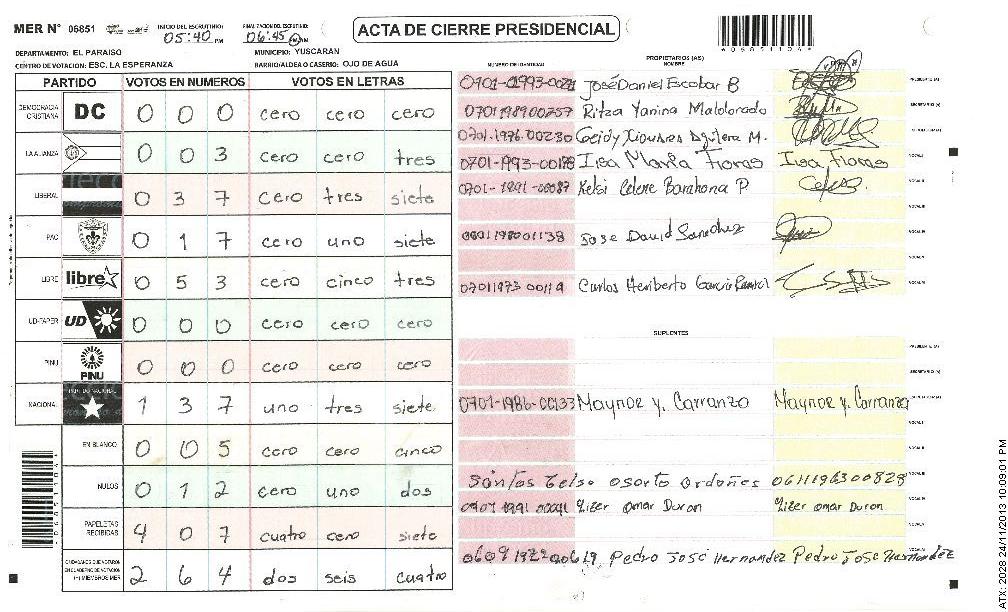 MER N° 06851 INICIO DEL ESCRUTINIO: 05:40 PM FINALIZACION DEL ESCRUTINIO: 06:45 PM
ACTA DE CIERRE PRESIDENCIAL
DEPARTAMENTO: EL PARAISO MUNICIPIO: YUSCARAN
CENTRO DE VOTACION: ESC. LA ESPERANZA BARRIO/ALDEA O CASERIO: OJO DE AGUA
PARTIDO VOTOS EN NUMEROS VOTOS EN LETRAS
DEMOCRACIA CRISTIANA DC 0 0 0 cero cero cero
LA ALIANZA 0 0 3 cero cero tres
LIBERAL 0 3 7 cero tres siete
PAC 0 1 7 cero uno siete
LIBRE libre 0 5 3 cero cinco tres
UD-FAPER UD 0 0 0 cero cero cero
PINU PINU 0 0 0 cero cero cero
NACIONAL 1 3 7 uno tres siete
EN BLANCO 0 0 5 cero cero cinco
NULOS 0 1 2 cero uno dos
PAPELETAS RECIBIDAS 4 0 7 cuatro cero siete
2 6 4 dos seis cuatro
NUMERO DE IDENTIDAD PROPIETARIOS (AS)
NOMBRE
José Daniel Escobar B
0701198900257 Ritza Yanina Maldorado
0701-1976-00230
0701-1993-00178 Isa Maria Floras Isa Floras
0701-1991-00087 Kelsi Celere Barahona P
Jose David Sanchez
07011973 00119 Carlos Heriberto Garcia
SUPLENTES
0701-1986-00133 Maynor y. Carranza Maynor y. Carranza
Santos Celso Osorto Ordoñes 0611196300828
omar Duron omar Duron
Pedro José Hernandez Pedro José Hernandez
ATX: 2028 24/11/2013 10:09:01 PM